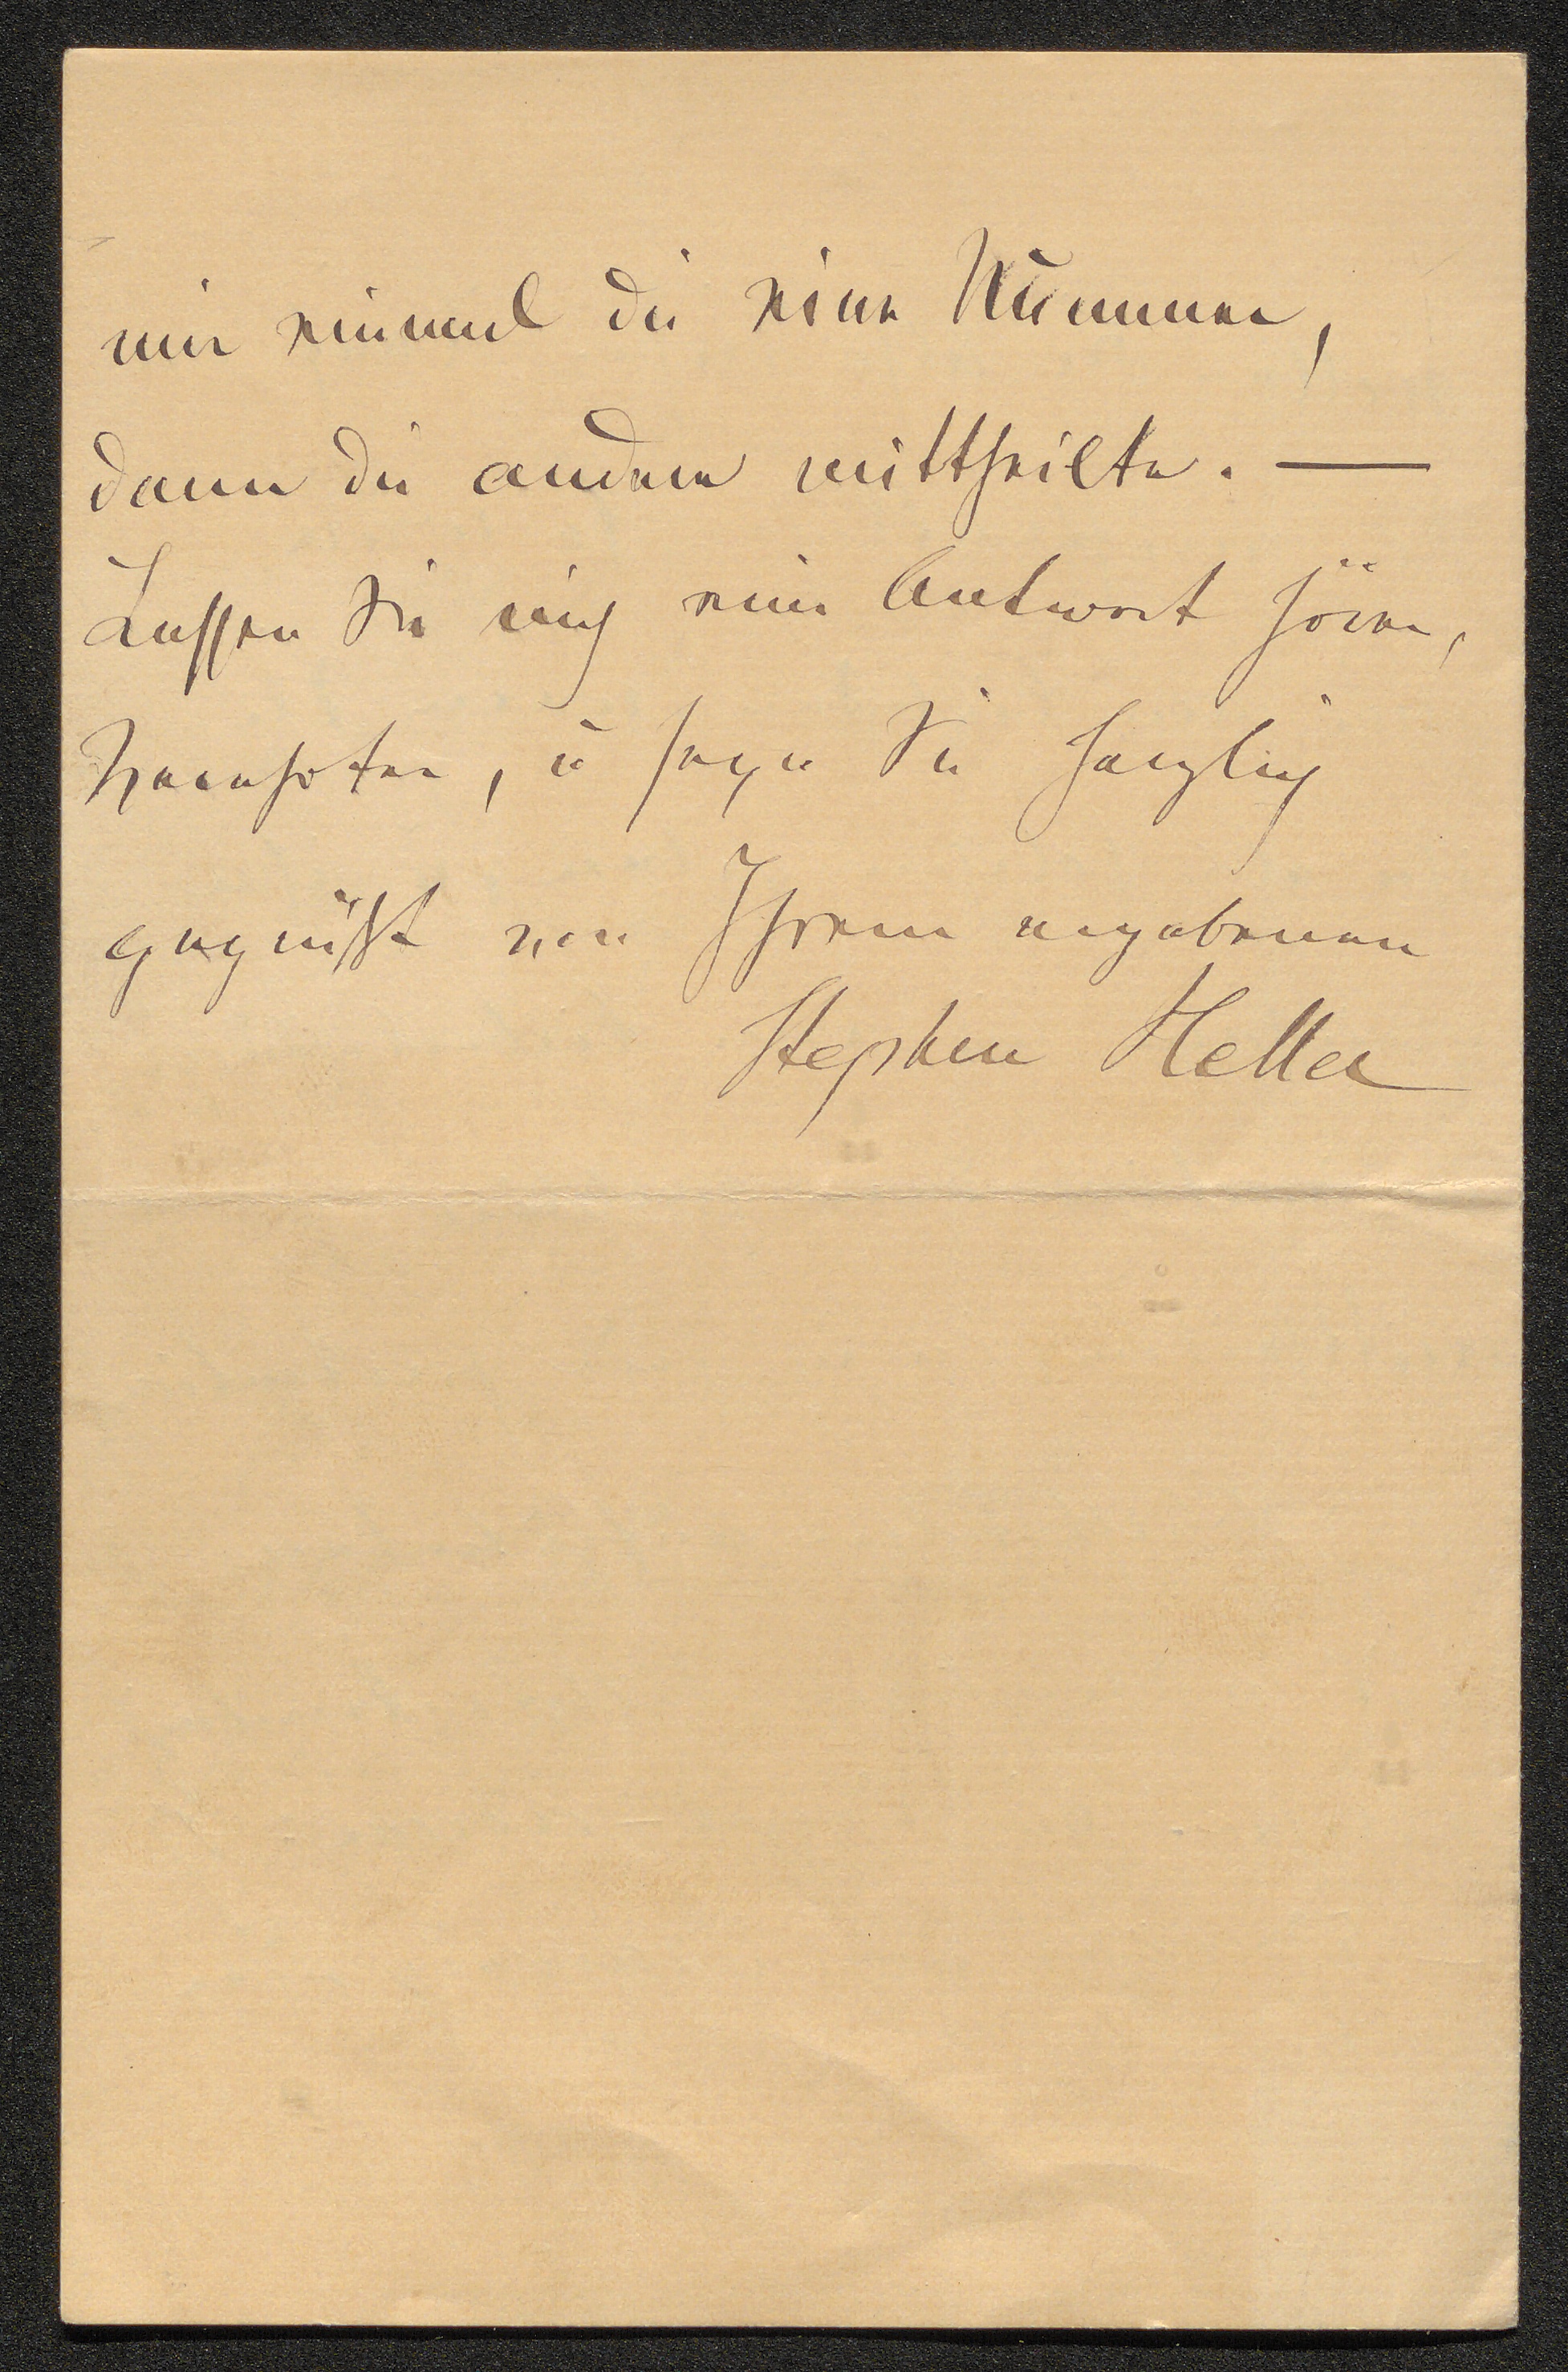 mir einmal die eine Nummer,
dann die andere mittheilte. —
Lassen Sie mich eine Antwort hören,
Verehrter, u seyen Sie herzlich
gegrüßt von Ihrem ergebenen
Stephen Heller